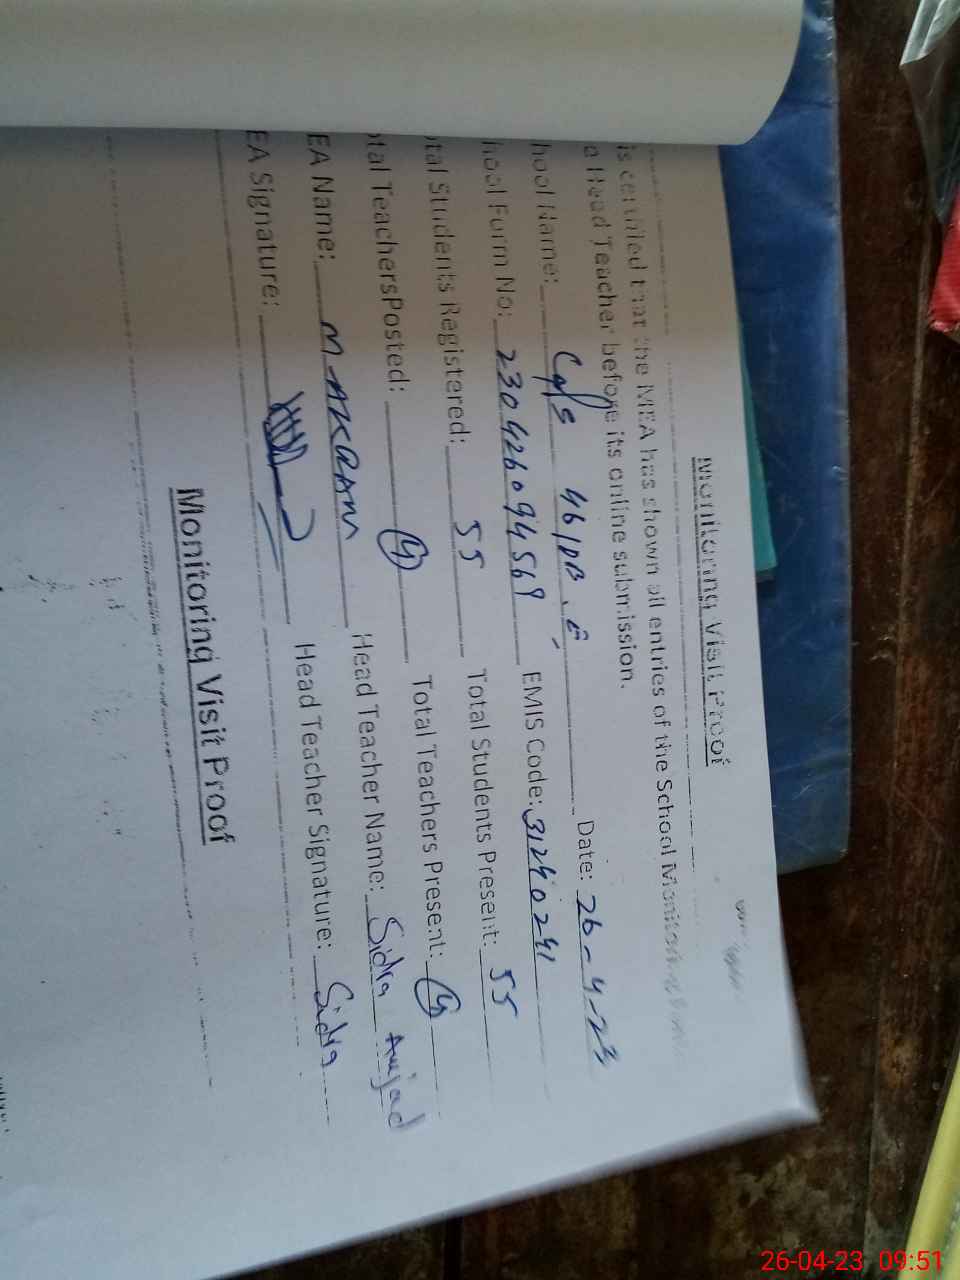 Monitoring Visit Proof
is certified that the MEA has shown all entries of the School Monitoring
a Head Teacher before its online submission.
hool Name: Cgps 46/DB .E Date: 26-4-23
hool Form No: 230426094569 EMIS Code: 31240241
otal Students Registered: 55 Total Students Present: 55
otal TeachersPosted: Total Teachers Present:
EA Name: M AKRAM Head Teacher Name: Sidra Amjad
EA Signature: Head Teacher Signature: Sidra
Monitoring Visit Proof
26-04-23 09:51